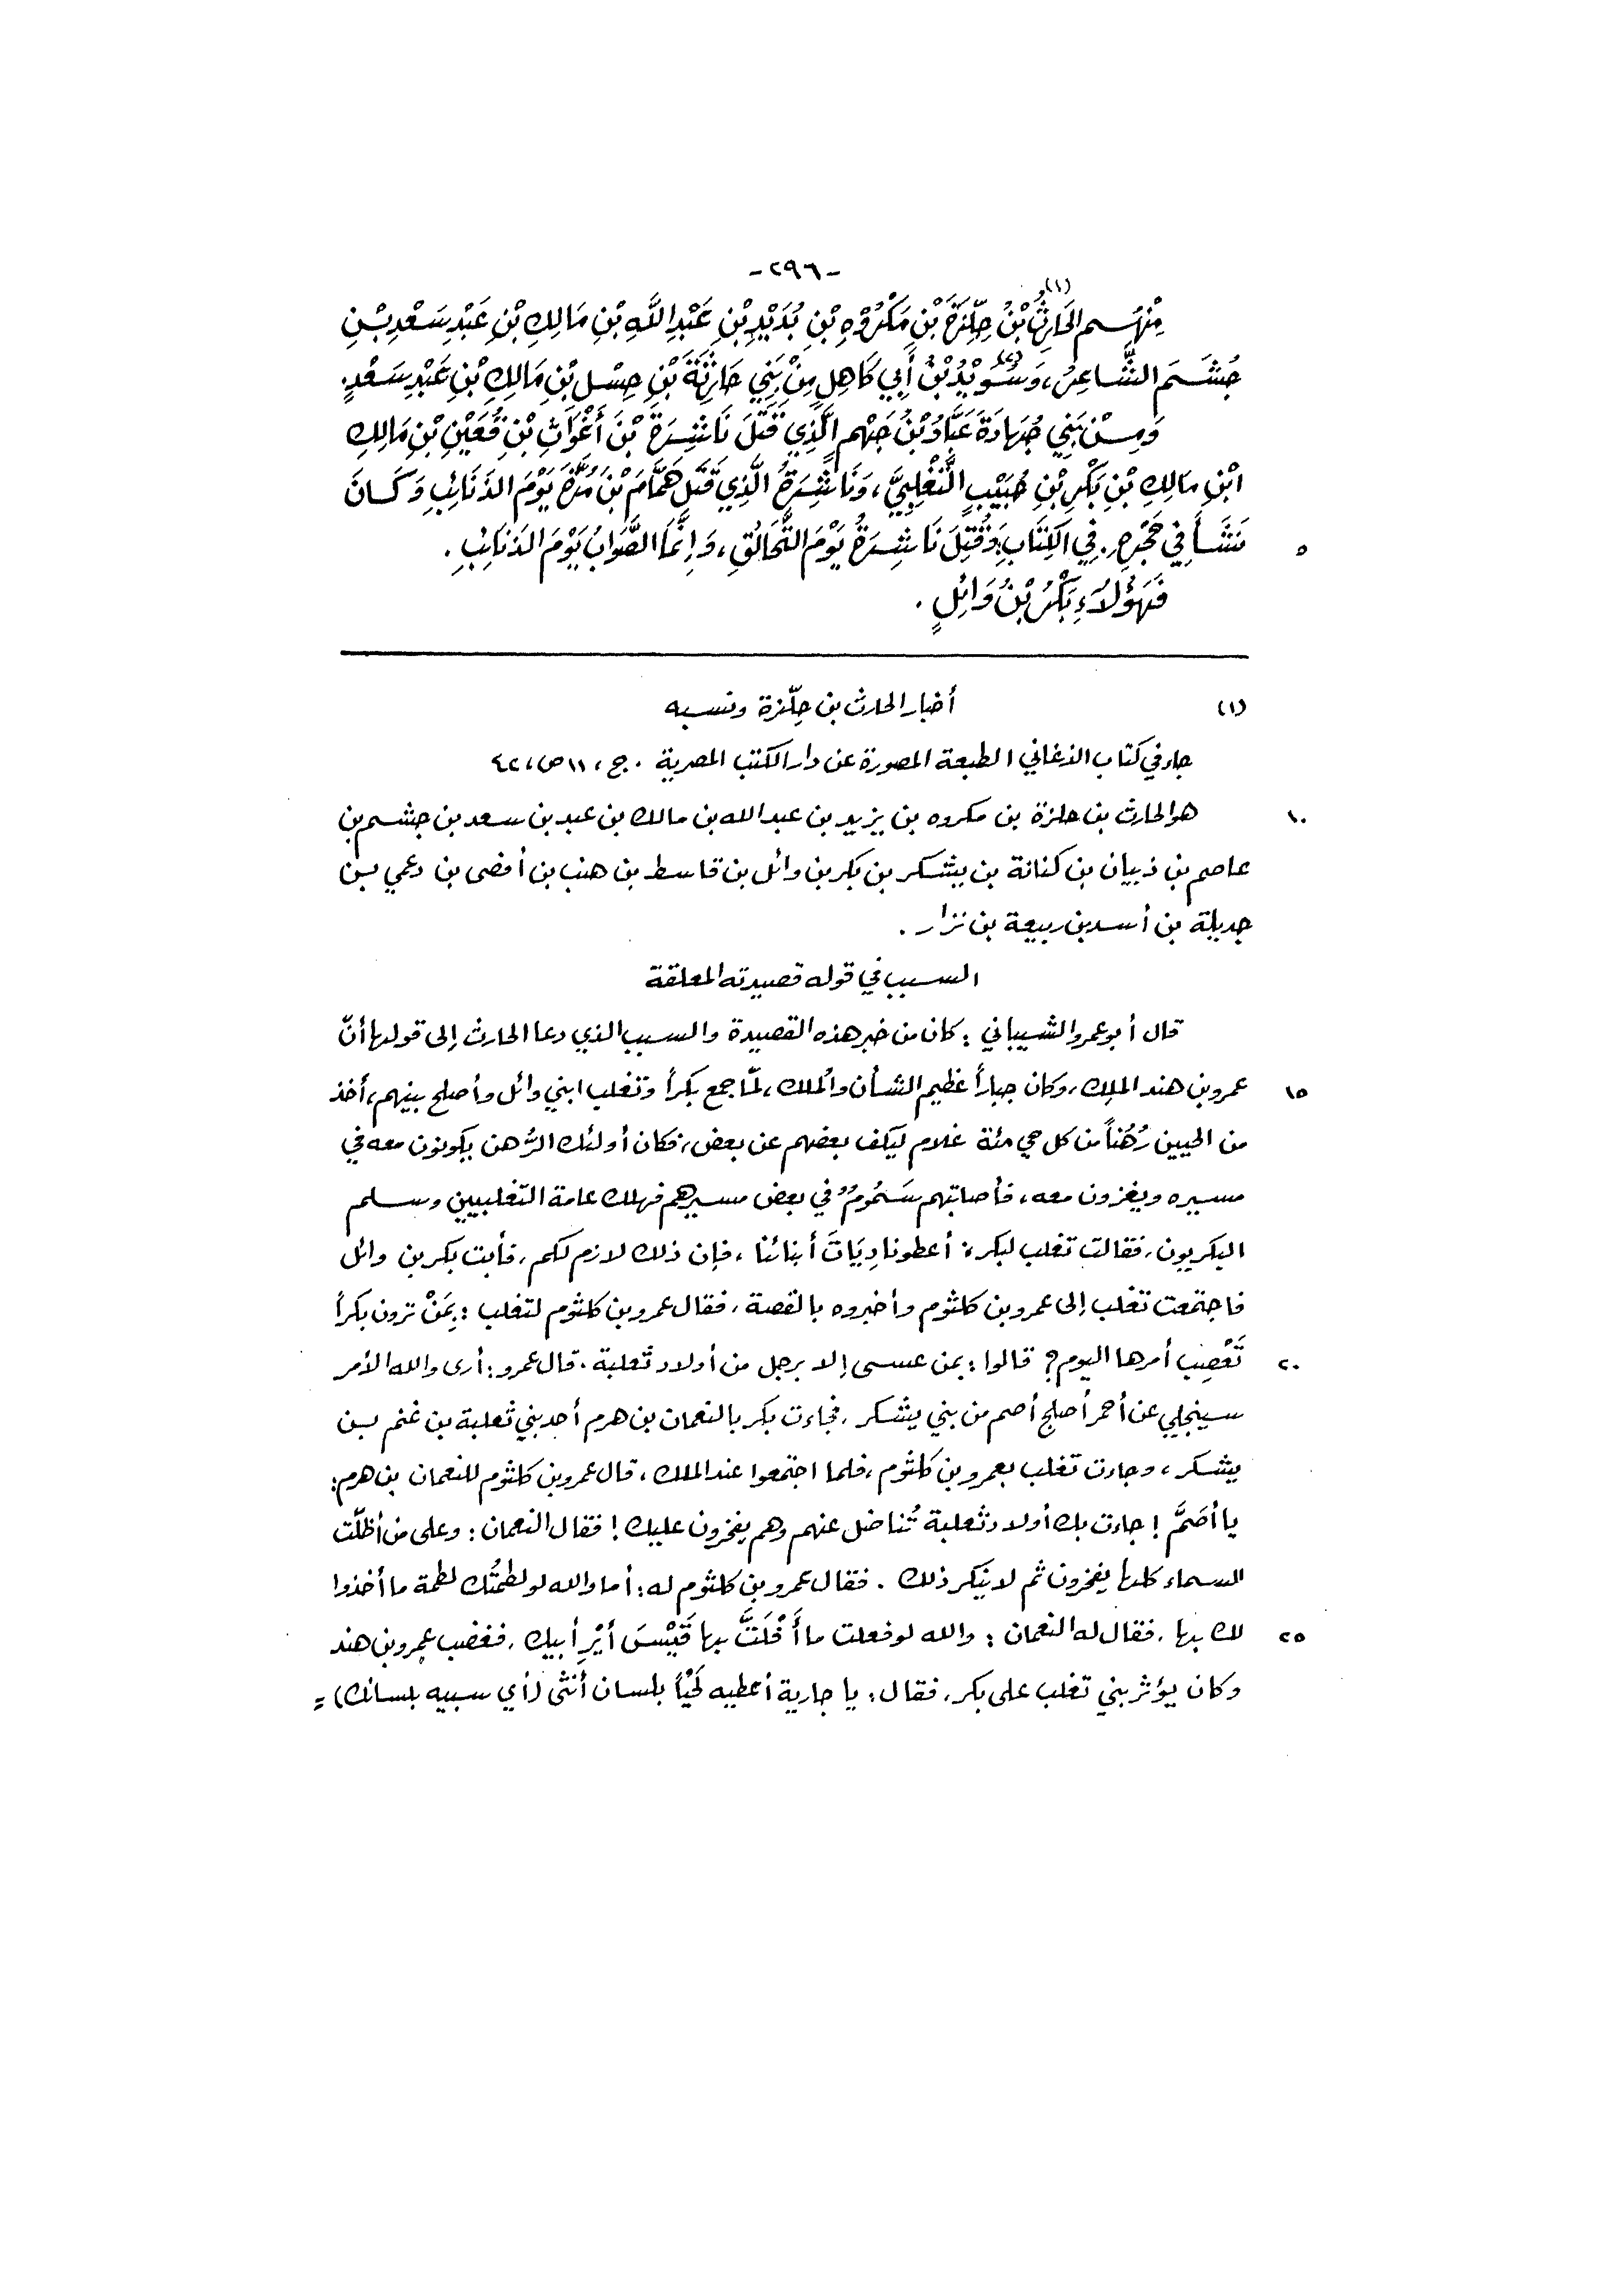 -٢٩٦-
مِنْهُم الحَارِثُ(١) بْنُ حِلِّزَةَ بْنِ مَكْرُوْهِ بْنِ بُدَيْدِ بْنِ عَبْدِ اللَّهِ بْنِ مَالِكِ بْنِ عَبْدِ سَعْدِ بْنِ
جُشَمَ الشَّاعِرُ، وَسُوَيْدُ(٢) بْنُ أَبِي كَاهِلٍ مِنْ بَنِي حَارِثَةَ بْنِ حِسْلِ بْنِ مَالِكِ بْنِ عَبْدِ سَعْدٍ.
وَمِنْ بَنِي جُهَادَةَ عَبَّادُ بْنُ جَهْمٍ الَّذِي قَتَلَ نَاشِرَةَ بْنَ أَغْوَاثِ بْنِ قُعَيْنِ بْنِ مَالِكِ
ابْنِ مَالِكِ بْنِ بَكْرِ بْنِ حُبَيْبٍ التَّغْلِبِيَّ، وَنَاشِرَةُ الَّذِي قَتَلَ هَمَّامَ بْنَ مُرَّةَ يَوْمَ الذَنَائِبِ وَكَانَ
نَشَأَ فِي حَجْرِهِ. فِي الكِتَابِ: وَقُتِلَ نَاشِرَةُ يَوْمَ التَّحَالُقِ، وَإِنَّمَا الصَّوَابُ يَوْمَ الذَنَائِبِ. ٥
فَهَؤُلَاءِ بَكْرُ بْنُ وَائِلٍ.
(١) أخبار الحارث بن حِلّزة ونسبه
جاء في كتاب الأغاني الطبعة المصورة عن دار الكتب المصرية. ج، ١١ ص، ٤٢
هو الحارث بن حلزة بن مكروه بن يزيد بن عبد الله بن مالك بن عبد بن سعد بن جشم بن ١٠
عاصم بن ذبيان بن كنانة بن يشكر بن بكر بن وائل بن قاسط بن هنب بن أفصى بن دعمي بن
جديلة بن أسد بن ربيعة بن نزار.
السبب في قوله قصيدته المعلقة
قال أبو عمرو الشيباني: كان من خبر هذه القصيدة والسبب الذي دعا الحارث إلى قولها أنّ
عمرو بن هند الملك، وكان جباراً عظيم الشأن والملك، لمّا جمع بكراً وتغلب ابني وائل وأصلح بينهم، أخذ ١٥
من الحيين رُهُناً من كل حي مئة غلام ليكف بعضهم عن بعض، فكان أولئك الرُّهن يكونون معه في
مسيره ويغزون معه، فأصابتهم سَمُومٌ في بعض مسيرهم فهلك عامة التغلبيين وسلم
البكريون، فقالت تغلب لبكر: أعطونا دِيَاتَ أبنائنا، فإن ذلك لازم لكم، فأبت بكر بن وائل
فاجتمعت تغلب إلى عمرو بن كلثوم وأخبروه بالقصة، فقال عمرو بن كلثوم لتغلب: بِمَنْ ترون بكراً
تَعْصِب أمرها اليوم؟ قالوا: بمن عسى إلا برجل من أولاد ثعلبة. قال عمرو: أرى والله الأمر ٢٠
سينجلي عن أحمر أصلج أصم من بني يشكر، فجاءت بكر بالنعمان بن هرم أحد بني ثعلبة بن غنم بن
يشكر، وجاءت تغلب بعمرو بن كلثوم، فلما اجتمعوا عند الملك، قال عمرو بن كلثوم للنعمان بن هرم:
يا أصَمَّ! جاءت بك أولاد ثعلبة تُناضل عنهم وهم يفخرون عليك! فقال النعمان: وعلى من أظلّت
السماء كلها يفخرون ثم لا يُنكر ذلك. فقال عمرو بن كلثوم له: أما والله لو لطمتُك لطمة ما أخذوا
لك بها، فقال له النعمان: والله لو فعلت ما أَفْلَتَّ بها قَيْسَ أيْرِ أبيك، فغضب عمرو بن هند ٢٥
وكان يؤثر بني تغلب على بكر، فقال: يا جارية أعطيه لَحْياً بلسان أنثى (أي سبيه بلسانك) =